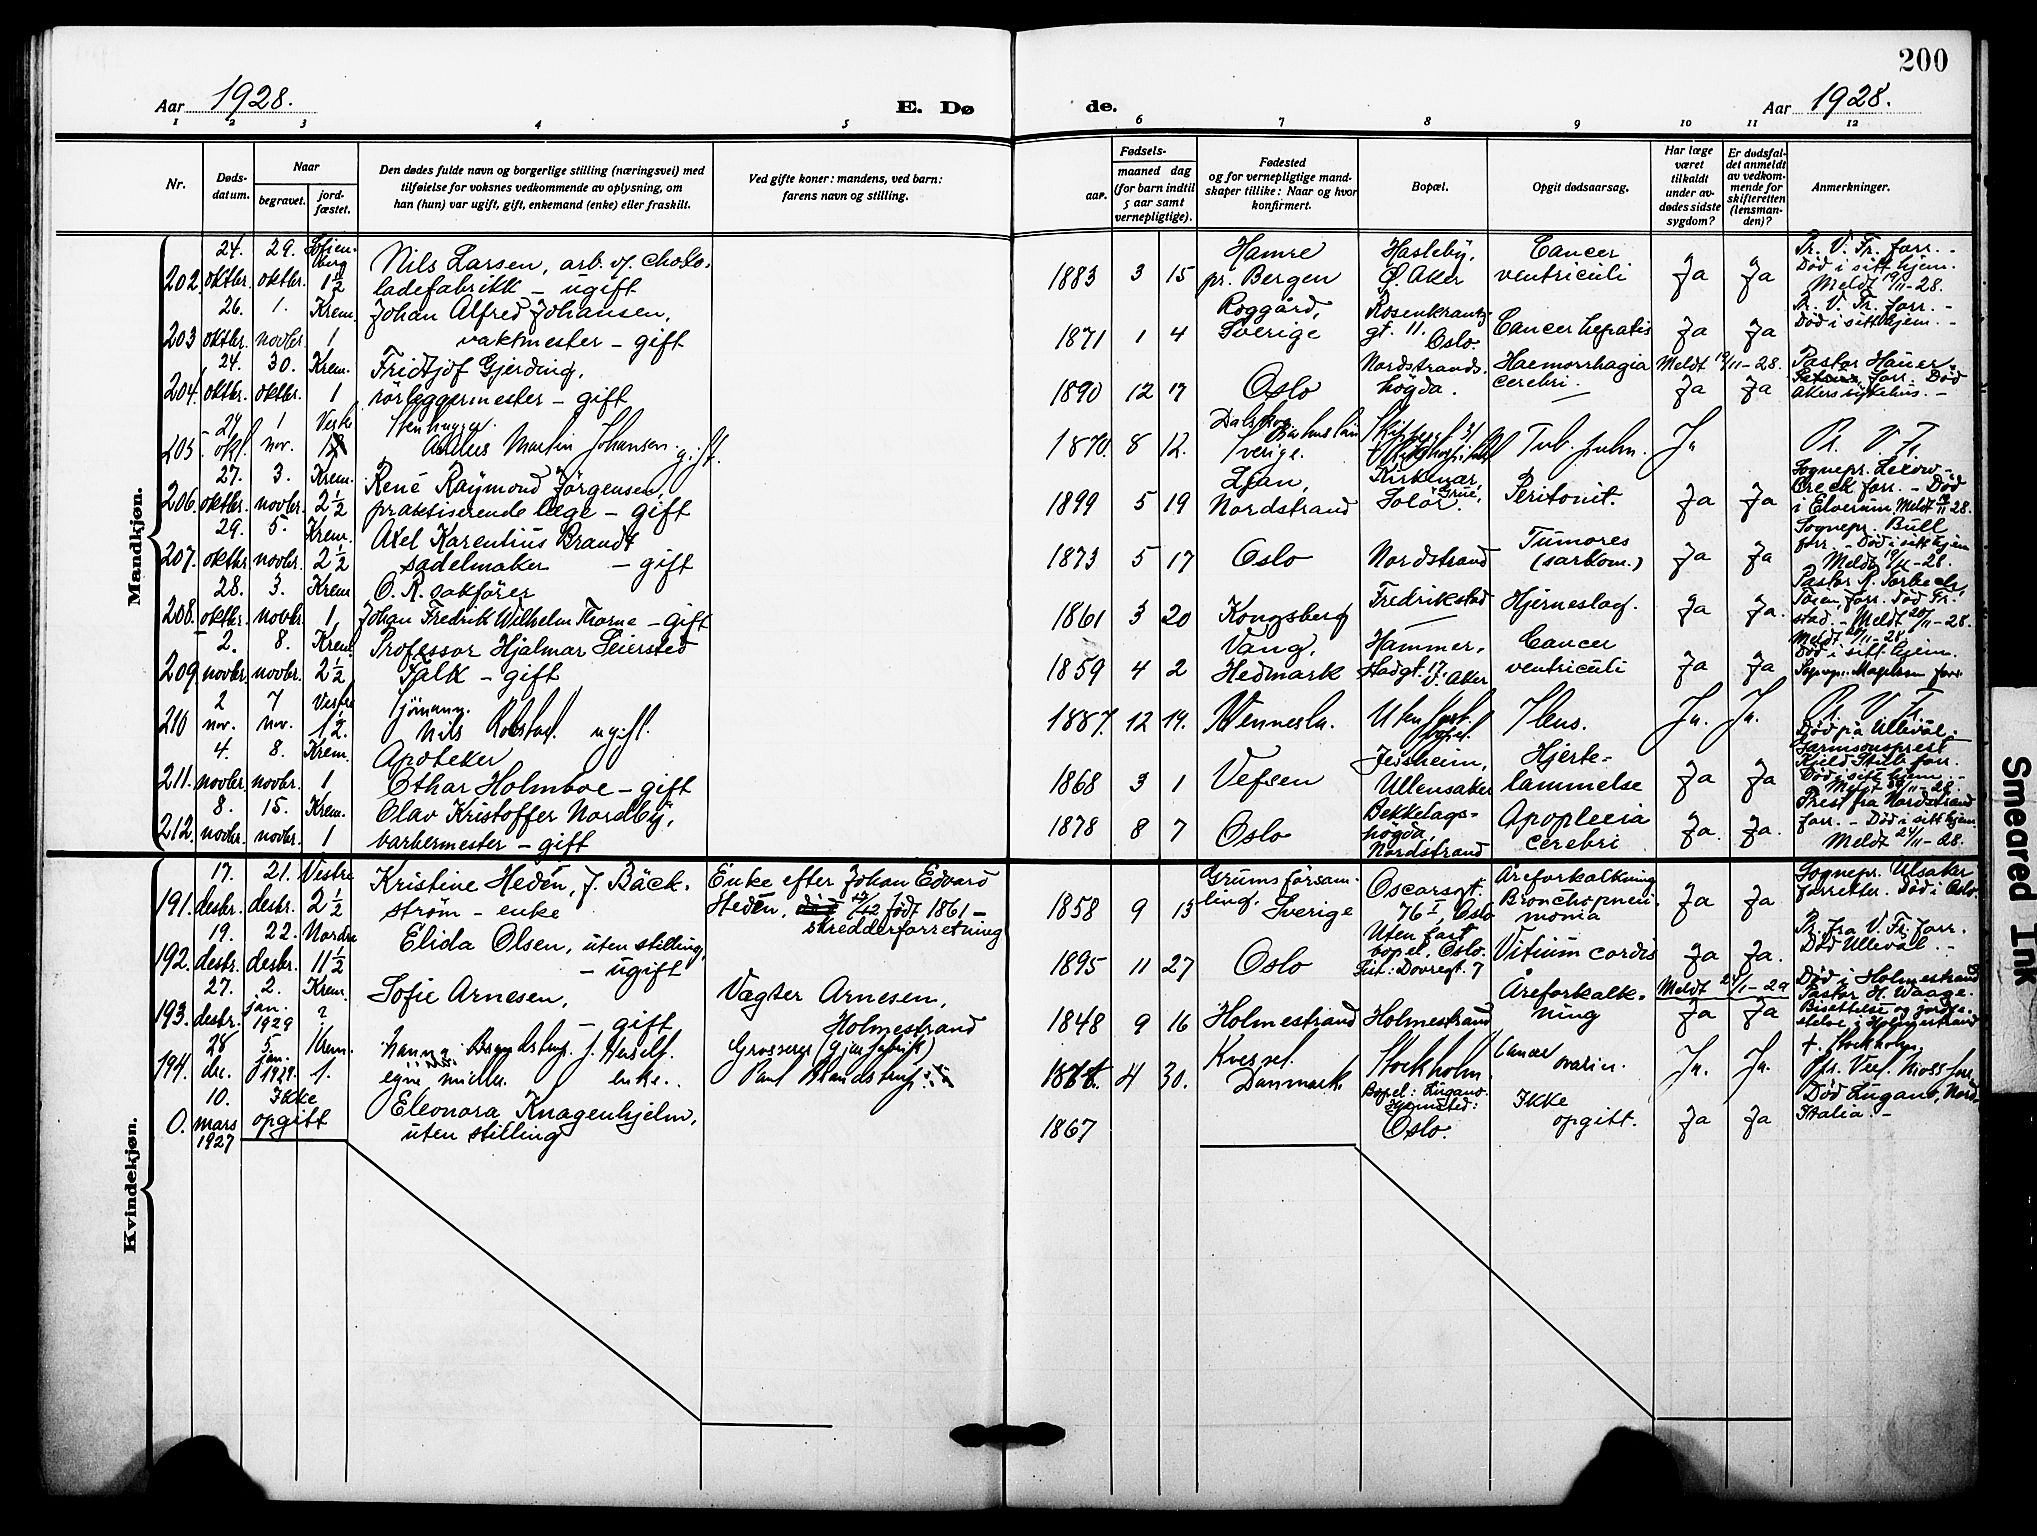 200
Aar 1928.
E. Dø
de.
Aar 1928.
1 2 3 4 5 6 7 8 9 10 11 12
Nr.
Døds-
datum.
Naar
begravet.
jord-
fæstet.
Den dødes fulde navn og borgerlige stilling (næringsvei) med
tilføielse for voksnes vedkommende av oplysning, om
han (hun) var ugift, gift, enkemand (enke) eller fraskilt.
Ved gifte koner: mandens, ved barn:
farens navn og stilling.
Fødsels-
aar.
maaned dag
(for barn indtil
5 aar samt
vernepligtige).
Fødested
og for vernepligtige mand-
skaper tillike: Naar og hvor
konfirmert.
Bopæl.
Opgit dødsaarsag.
Har læge
været
tilkaldt
under av-
dødes sidste
sygdom?
Er dødsfal-
det anmeldt
av vedkom-
mende for
skifteretten
(lensman-
den)?
Anmerkninger.
Mandkjøn.
24. 29. Sofien-
berg
202. oktbr. oktbr. 1½
Nils Larsen, arb. v. choko-
ladefabrikk - ugift
1883 3 15
Hamre
pr. Bergen
Hasleby,
Ø. Aker
Cancer
ventriculi
Ja Ja
Pr. V. Fr. forr. -
Død i sitt hjem.
Meldt 19/11-28.
26. 1. Krem.
203 oktbr. novbr. 1
Johan Alfred Johansen,
vaktmester - gift
1871 1 4
Roggård,
Sverige
Rosenkrantz
gt. 11. Oslo.
Cancer hepatis
Ja Ja
Pr. V. Fr. forr. -
Død i sitt hjem. -
24. 30. Krem.
204. oktbr. oktbr. 1
Fridtjof Gjerding,
rörleggermester - gift
1890 12 17
Oslo
Nordstrands-
högda.
Haemorrhagia
cerebri.
Meldt 19/11-28.
Ja Ja
Pastor Hauer
forr. Död
Akers sykehus. -
1 Vestre
205. okt. nov.
Stenhugger
Martin Johansen. gift.
1870. 8 12.
Sverige.
Tub. pulm.
Ja
Pr. V. Fr.
27. 3. Krem.
206. oktbr. novbr. 2½
René Raymond Jörgensen,
praktiserende læge - gift
1899 5 19
Ljan,
Nordstrand
Kirkenær,
Grue,
Solör.
Peritonit.
Ja Ja
Sognepr.
forr. - Död
i Elverum. Meldt
29. 5. Krem.
207. oktbr novbr. 2½
Axel Karentius Brandt
sadelmaker - gift
1873 5 17
Oslo
Nordstrand
Tumores
(sarkom.)
Ja Ja
Sognepr. Bull
forr. - Död i sitt hjem
Meldt 19/11-28.
28. 3. Krem
208. oktbr. novbr. 1
O. R. sakförer
Johan Fredrik Wilhelm Thorne - gift
1861 3 20
Kongsberg
Fredrikstad
Hjerneslag.
Ja Ja.
Pastor
forr. Död Fr.
stad. - Meldt 20/11-28.
2. 8. Krem.
209 novbr. novbr. 2½
Professor Hjalmar Seiersted
Falk - gift
1859 4 2
Vang,
Hedmark
Hammer-
stadgt. 17
V. Aker
Cancer
ventriculi
Ja Ja
Meldt 20/11-28
Död i sitt hjem.
2 7 Vestre
210 nov. nov. 1½.
Sjömann.
Nils Robstad. ugift.
1887. 12 14.
Vennesla.
Uten fast
bopel.
Ileus.
Ja. Ja.
Pr. V. Fr.
Död på Ullevål.
4. 8. Krem.
211. novbr. novbr. 1
Apoteker
Othar Holmboe - gift
1868 3 1
Vefsen
Jessheim,
Ullensaker
Hjerte-
lammelse
Ja Ja
Garnisonsprest
Kield Stub forr.
Död i sitt hjem -
8. 15. Krem.
212. novbr. novbr. 1
Olav Kristoffer Nordby,
barbermester - gift
1878 8 7
Oslo
Bekkelags-
högda,
Nordstrand
Apoplexia
cerebri
Ja. Ja.
Prest fra Nordstrand
forr. - Död i sitt hjem
Meldt 24/11-28.
Kvindekjøn.
17. 21. Vestre
191. desbr. desbr. 2½
Kristine Hedén, f. Bäck-
ström - enke
Enke efter Johan Edvard
Hedén, född 1861 -
skredderforretning
1858 9 13
Grums försam-
ling, Sverige
Oscarsgt.
76 I, Oslo
Åreforkalkning
Bronchopneu-
monia
Ja Ja
Sognepr. Ulsaker
forretter. Död i Oslo.
19. 22. Nordre
192. desbr. desbr. 11½
Elida Olsen, uten stilling,
- ugift
1895 11 27
Oslo
Uten fast
bopel, Oslo.
Sist: Dovregt. 7
Vitium cordis
Ja Ja.
Pr. fra V. Fr. forr.
Död Ullevål. -
27. 2. Krem.
193. desbr. jan. 1929 2
Sofie Arnesen,
- gift
Vægter Arnesen,
Holmestrand
1848 9 16
Holmestrand
Holmestrand
Åreforkalk-
ning
Meldt 24/1-29
Ja Ja
Död i Holmestrand
Pastor H. Waage.
Bisettelse og jordfe-
stelse i Holmestrand
28 5. Krem.
194. des. jan. 1929. 1.
Hanna Brandstrup f.
egne midler. enke.
Grosserer
Paul Brandstrup.
4 30.
Danmark
Stockholm.
Cancer
ovarier.
Ja. Ja.
+ Stockholm.
10. Ikke
0. mars opgitt
1927
Eleonora Knagenhjelm,
uten stilling
1867
Bopel: Lugano.
Hjemsted:
Oslo.
Ikke
opgitt.
Ja Ja
Död Lugano, Nord-
Italia. -
Smeared Ink